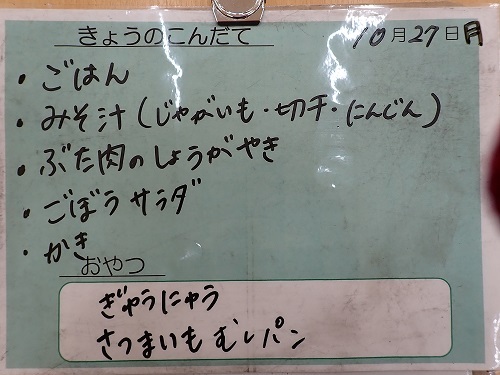 きょうのこんだて 10月27日月
・ごはん
・みそ汁(じゃがいも・切干・にんじん)
・ぶた肉のしょうがやき
・ごぼうサラダ
・かき
おやつ
ぎゅうにゅう
さつまいもむしパン